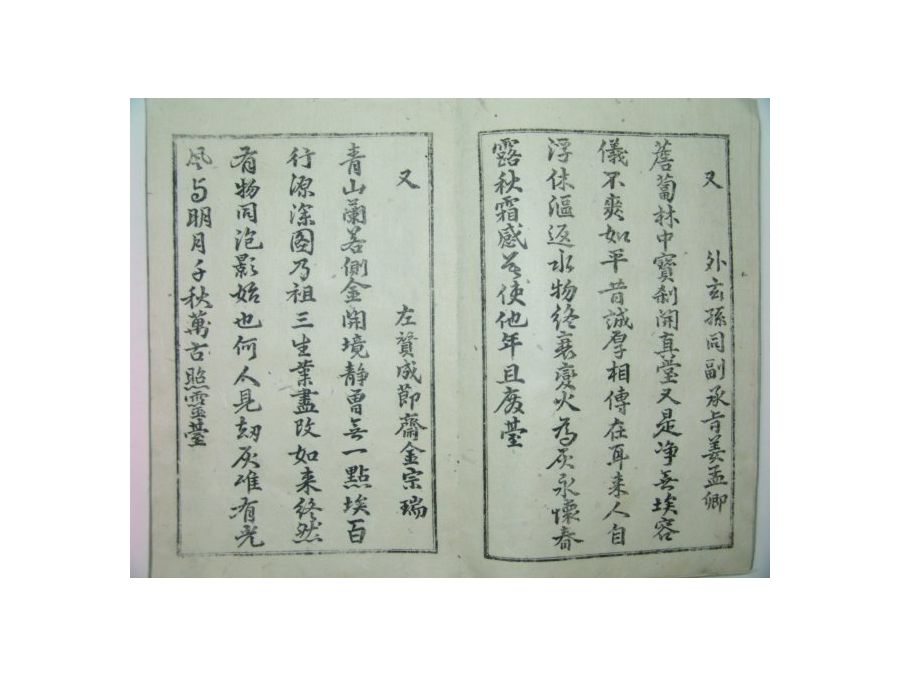 又
外玄孫同副承旨姜孟卿
薝蔔林中寳刹開真堂又是净無埃容
儀不爽如平昔誠厚相傳在耳來人自
浮休漚返水物終衰變火為灰永懷春
露秋霜感莫使他年且废䑓
又
左賛成節齋金宗瑞
青山蘭若側金開境静曽無一點埃百
行源深固乃祖三生業盡改如来終然
有物同泡影始也何人見劫灰唯有光
风与明月千秋萬古照靈䑓